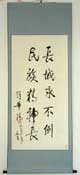 長城永不倒
民族精神長